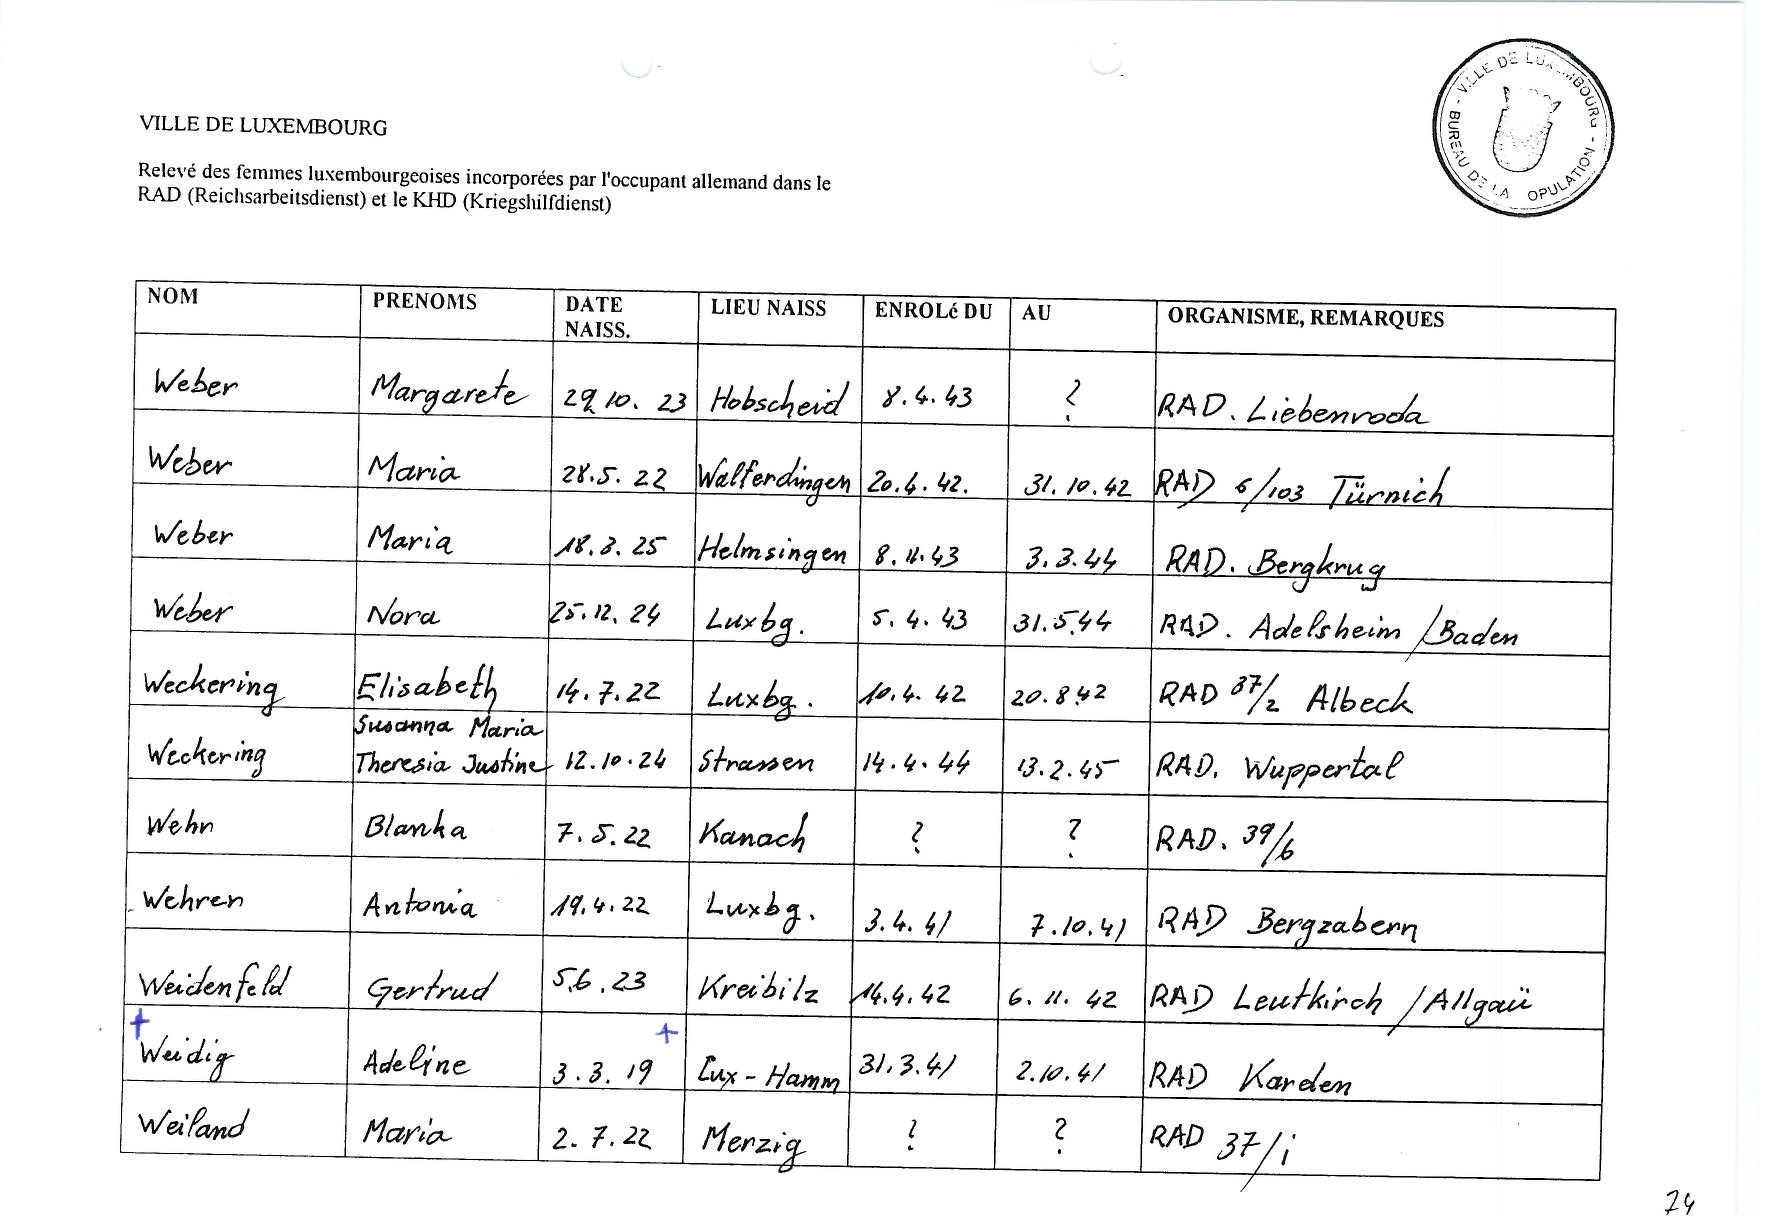 VILLE DE LUXEMBOURG - BUREAU DE LA OPULATION -
VILLE DE LUXEMBOURG
Relevé des femmes luxembourgeoises incorporées par l'occupant allemand dans le
RAD (Reichsarbeitsdienst) et le KHD (Kriegshilfdienst)
NOM PRENOMS DATE NAISS. LIEU NAISS ENROLé DU AU ORGANISME, REMARQUES
Weber Margarete 29.10.23 Hobscheid 8.4.43 ? RAD. Liebenroda
Weber Maria 28.5.22 Walferdingen 20.4.42. 31.10.42 RAD 6/103 Türnich
Weber Maria 18.3.25 Helmsingen 8.11.43 3.3.44 RAD. Bergkrug
Weber Nora 25.12.24 Luxbg. 5.4.43 31.5.44 RAD. Adelsheim /Baden
Weckering Elisabeth 14.7.22 Luxbg. 10.4.42 20.8.42 RAD 37/2 Albeck
Weckering Susanna Maria Theresia Justine 12.10.24 Strassen 14.4.44 13.2.45 RAD. Wuppertal
Wehn Blanka 7.5.22 Kanach ? ? RAD. 39/6
Wehren Antonia 19.4.22 Luxbg. 3.4.41 7.10.41 RAD Bergzabern
Weidenfeld Gertrud 5.6.23 Kreibilz 14.4.42 6.11.42 RAD Leutkirch /Allgäu
+ Weidig Adeline 3.3.19 + Lux-Hamm 31.3.41 2.10.41 RAD Karden
Weiland Maria 2.7.22 Merzig ? ? RAD 37/i
74